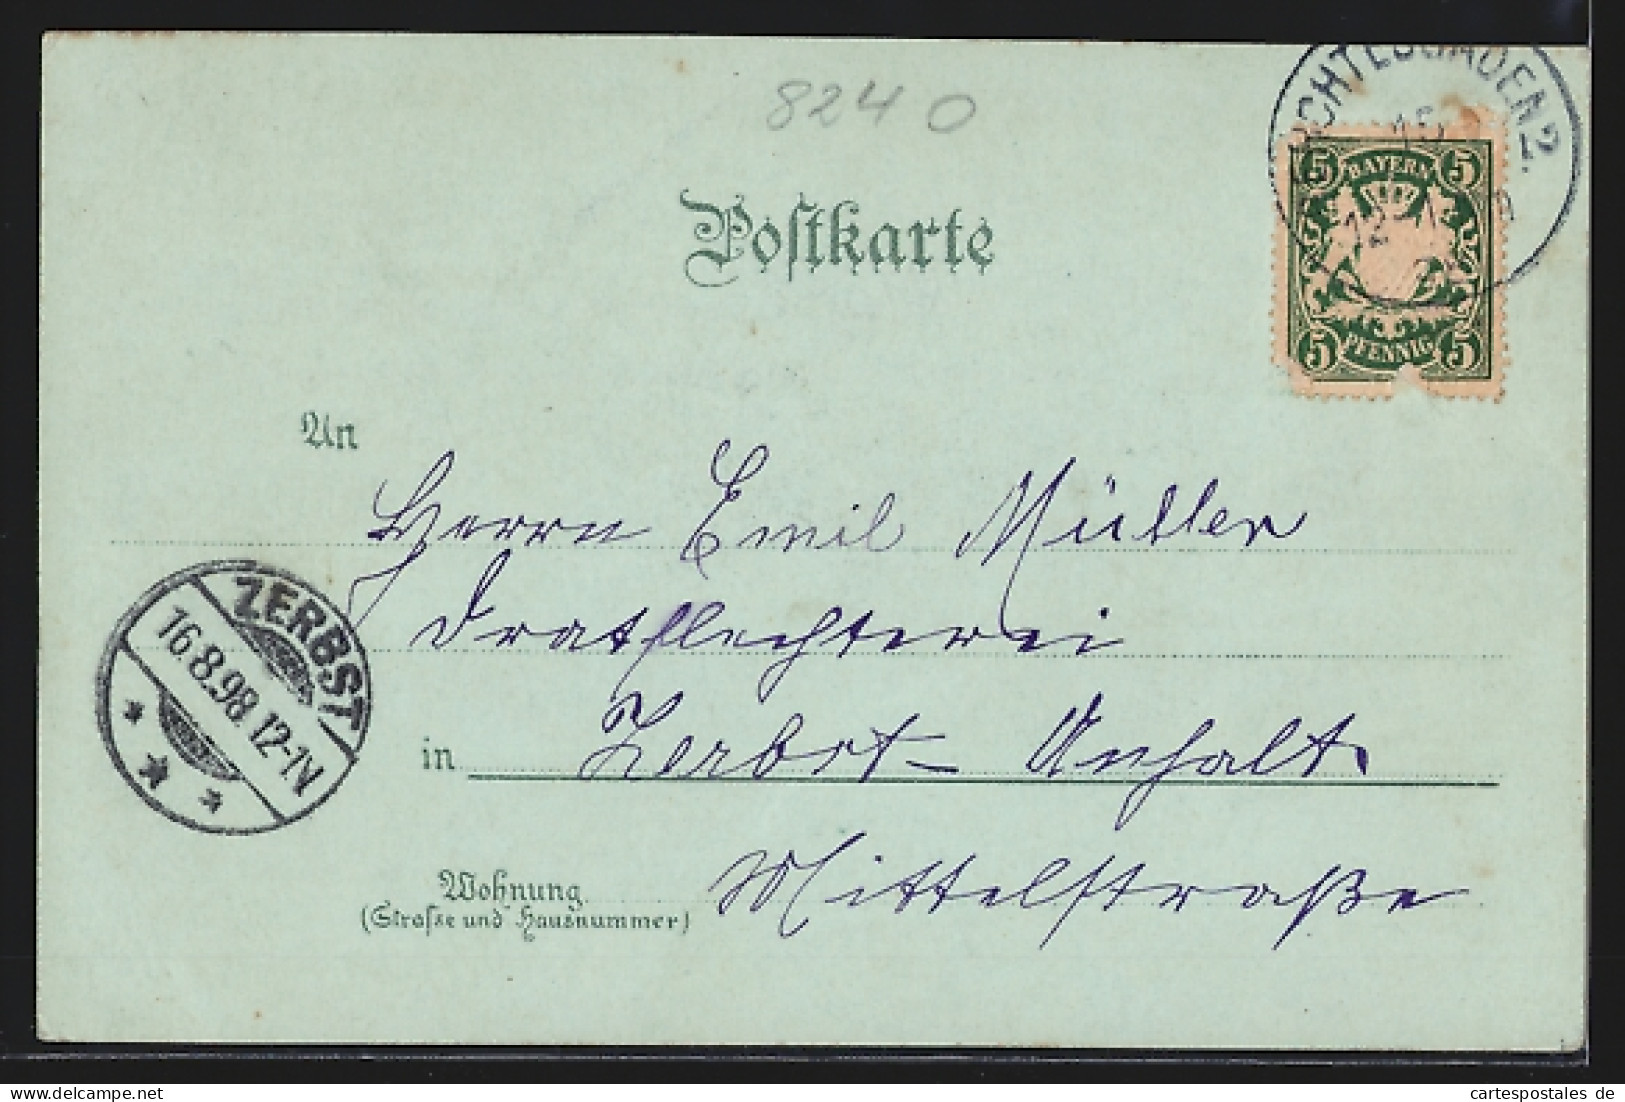 8240
BAYERN
5 5
5 PFENNIG 5
Postkarte
An
Herrn Emil Müller
Dratflechterei
in Zerbst - Anhalt.
Wohnung Mittelstraße
(Strasse und Hausnummer)
ZERBST
16.8.98.12-1N
delcampe.net
cartespostales de